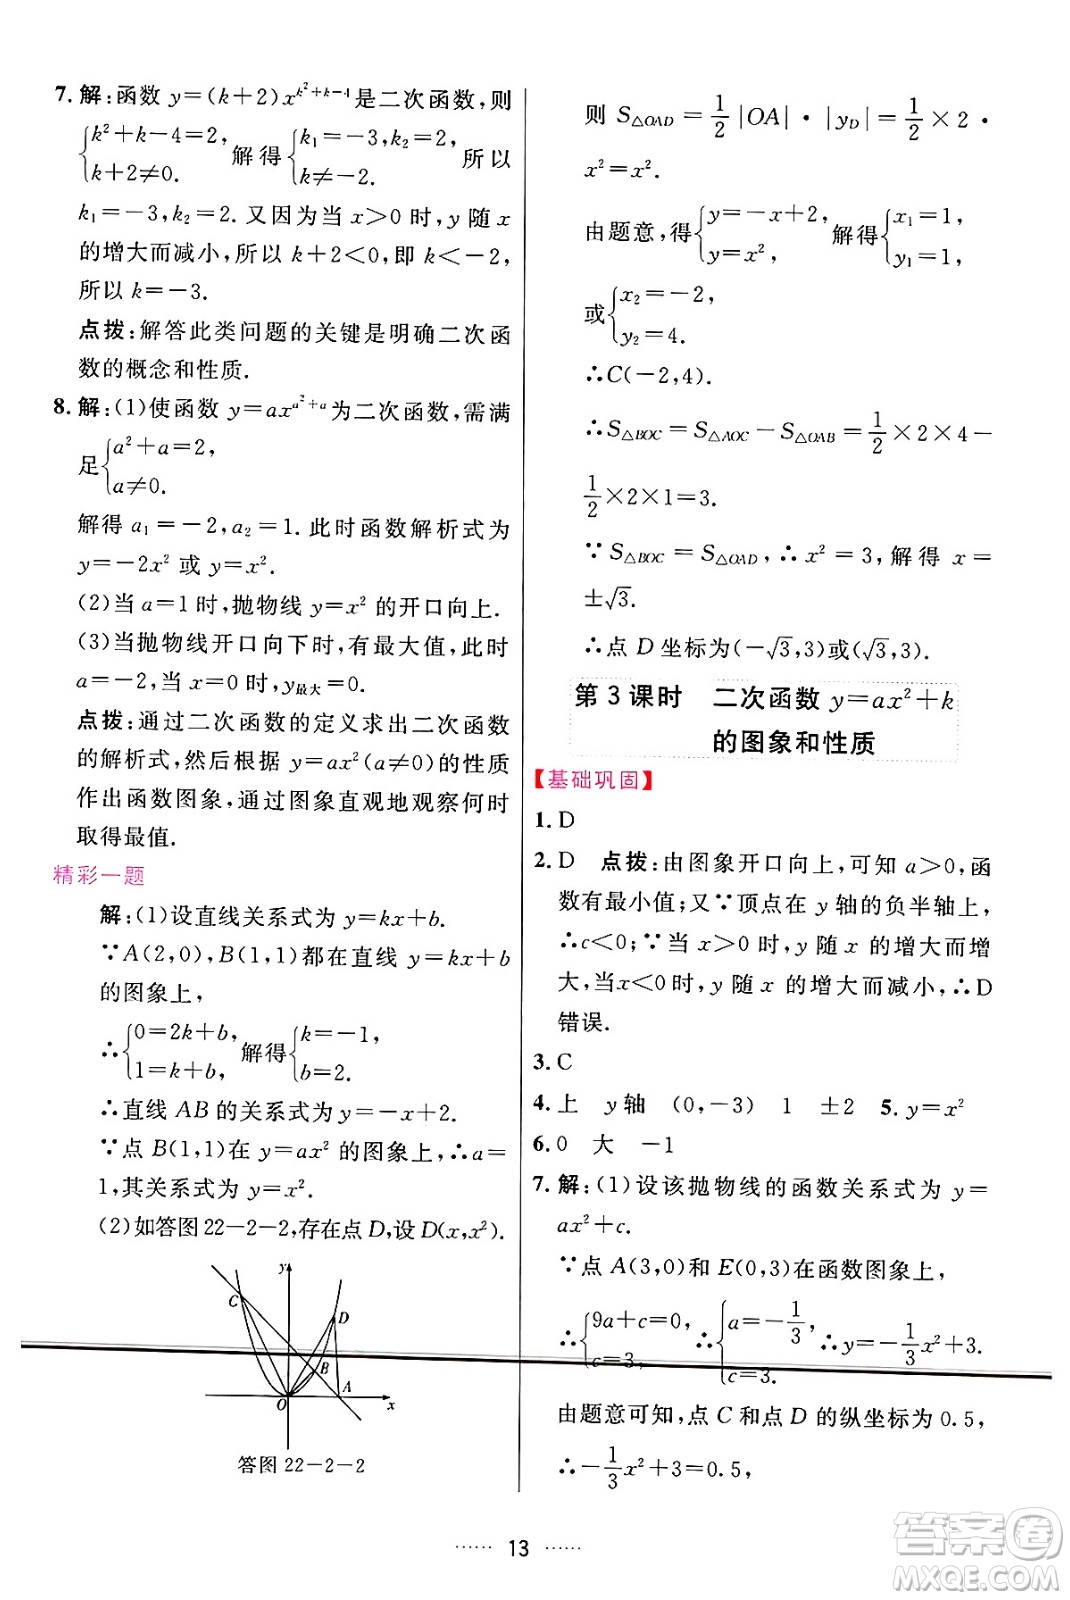 7. 解:函数 y=(k+2)x^{k²+k-4}是二次函数,则
{k²+k-4=2, k+2≠0. 解得 {k₁=-3,k₂=2, k≠-2. 所以
k₁=-3,k₂=2. 又因为当 x>0 时,y 随 x
的增大而减小,所以 k+2<0,即 k<-2,
所以 k=-3.
点拨:解答此类问题的关键是明确二次函
数的概念和性质.
8. 解:(1)使函数 y=ax^{a²+a}为二次函数,需满
足{a²+a=2, a≠0.
解得 a₁=-2,a₂=1. 此时函数解析式为
y=-2x² 或 y=x².
(2)当 a=1 时,抛物线 y=x² 的开口向上.
(3)当抛物线开口向下时,有最大值,此时
a=-2,当 x=0 时,y最大=0.
点拨:通过二次函数的定义求出二次函数
的解析式,然后根据 y=ax²(a≠0)的性质
作出函数图象,通过图象直观地观察何时
取得最值.
精彩一题
解:(1)设直线关系式为 y=kx+b.
∵A(2,0),B(1,1)都在直线 y=kx+b
的图象上,
∴{0=2k+b, 1=k+b, 解得{k=-1, b=2.
∴直线 AB 的关系式为 y=-x+2.
∵点 B(1,1)在 y=ax² 的图象上,∴a=
1,其关系式为 y=x².
(2)如答图 22-2-2,存在点 D,设 D(x,x²).
y
C
D
B
O
A
x
答图 22-2-2
则 S△OAD=1/2|OA|·|y_D|=1/2×2·
x²=x².
由题意,得{y=-x+2, y=x², 解得{x₁=1, y₁=1,
或{x₂=-2, y₂=4.
∴C(-2,4).
∴S△BOC=S△AOC-S△OAB=1/2×2×4-
1/2×2×1=3.
∵S△BOC=S△OAD,∴x²=3,解得 x=
±√3.
∴点 D 坐标为(-√3,3)或(√3,3).
第 3 课时 二次函数 y=ax²+k
的图象和性质
【基础巩固】
1. D
2. D 点拨:由图象开口向上,可知 a>0,函
数有最小值;又∵顶点在 y 轴的负半轴上,
∴c<0;∵当 x>0 时,y 随 x 的增大而增
大,当x<0 时,y 随 x 的增大而减小,∴D
错误.
3. C
4. 上 y 轴 (0,-3) 1 ±2 5. y=x²
6. 0 大 -1
7. 解:(1)设该抛物线的函数关系式为 y=
ax²+c.
∵点 A(3,0)和 E(0,3)在函数图象上,
∴{9a+c=0, c=3, ∴{a=-1/3, c=3. ∴y=-1/3x²+3.
由题意可知,点 C 和点 D 的纵坐标为 0.5,
∴-1/3x²+3=0.5,
······ 13 ······
答案圈
MXQE.COM